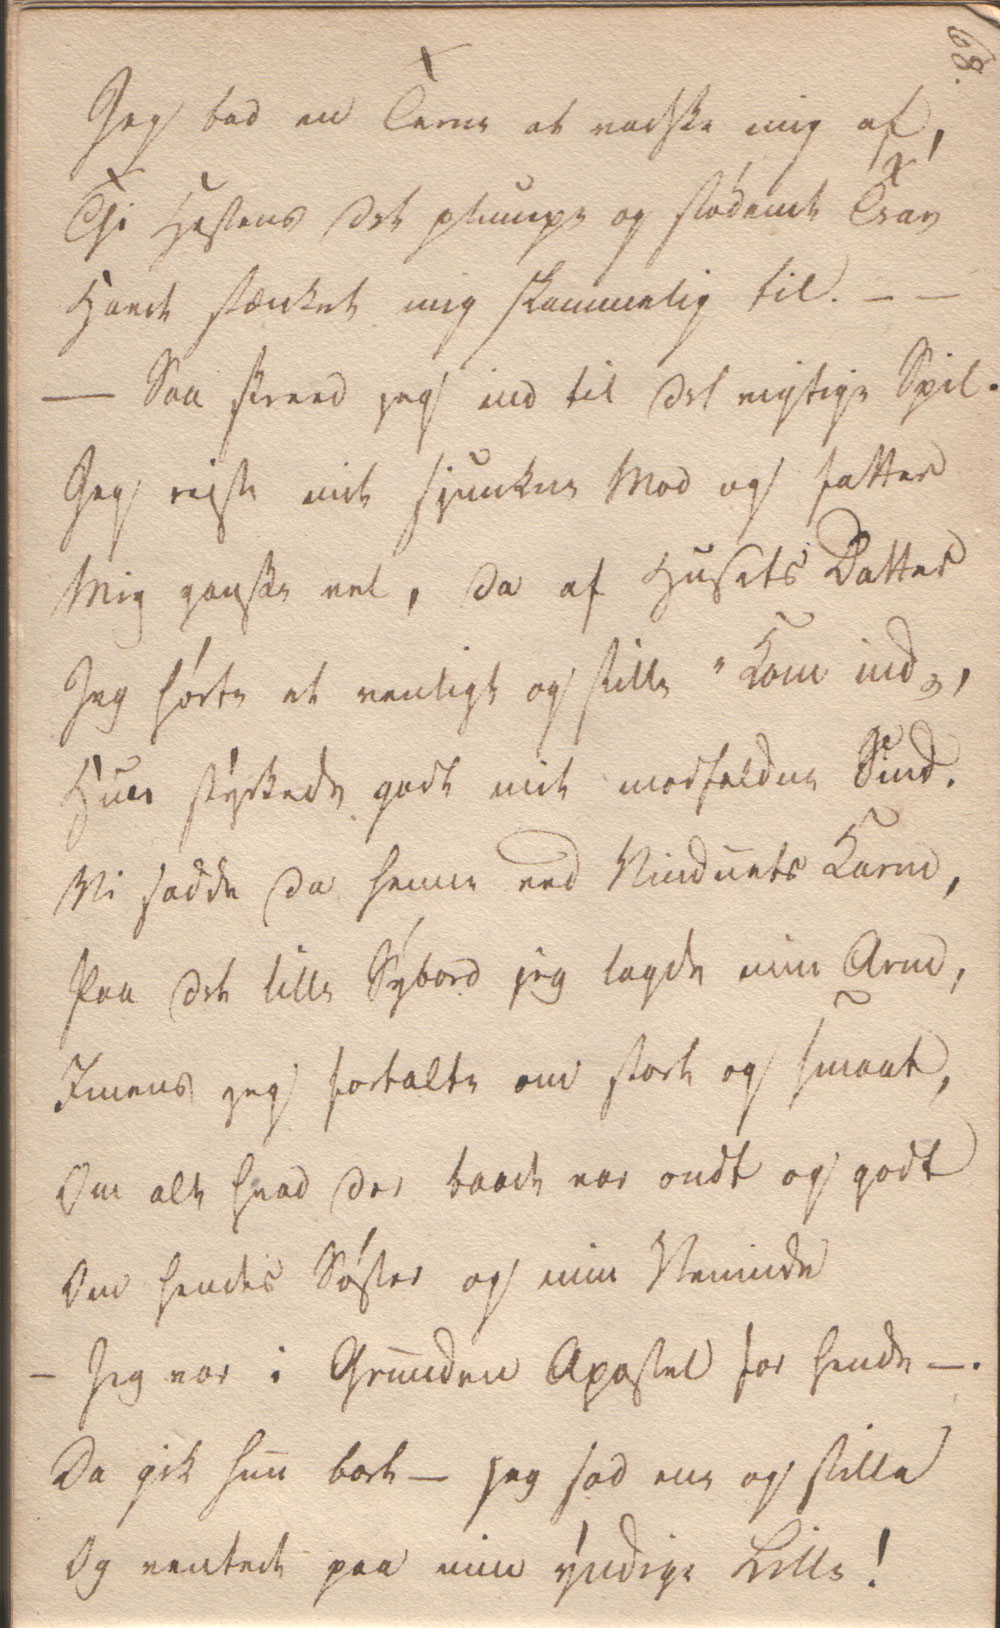 68.
Jeg bad en Terne at vadske mig af,
Thi Hestens det plumpe og stødende Trav
Havde stænket mig skammelig til. — —
— Saa skreed jeg ind til det rigtige Spil.
Jeg reiste mit sjunkne Mod og fatter
Mig ganske vel, da af Husets Datter
Jeg hørte et venligt og stille "Kom ind",
Hun styrkede godt mit modfaldne Sind.
Vi sadde da henne ved Vinduets Karm,
Paa det lille Sybord jeg lagde min Arm,
Imens jeg fortalte om stort og smaat,
Om alt hvad der baade var ondt og godt
Om hendes Søster og min Veninde
— Jeg var i Grunden Apostel for hende —.
Da gik hun bort — jeg sad ene og stille
Og ventede paa min yndige Lille!